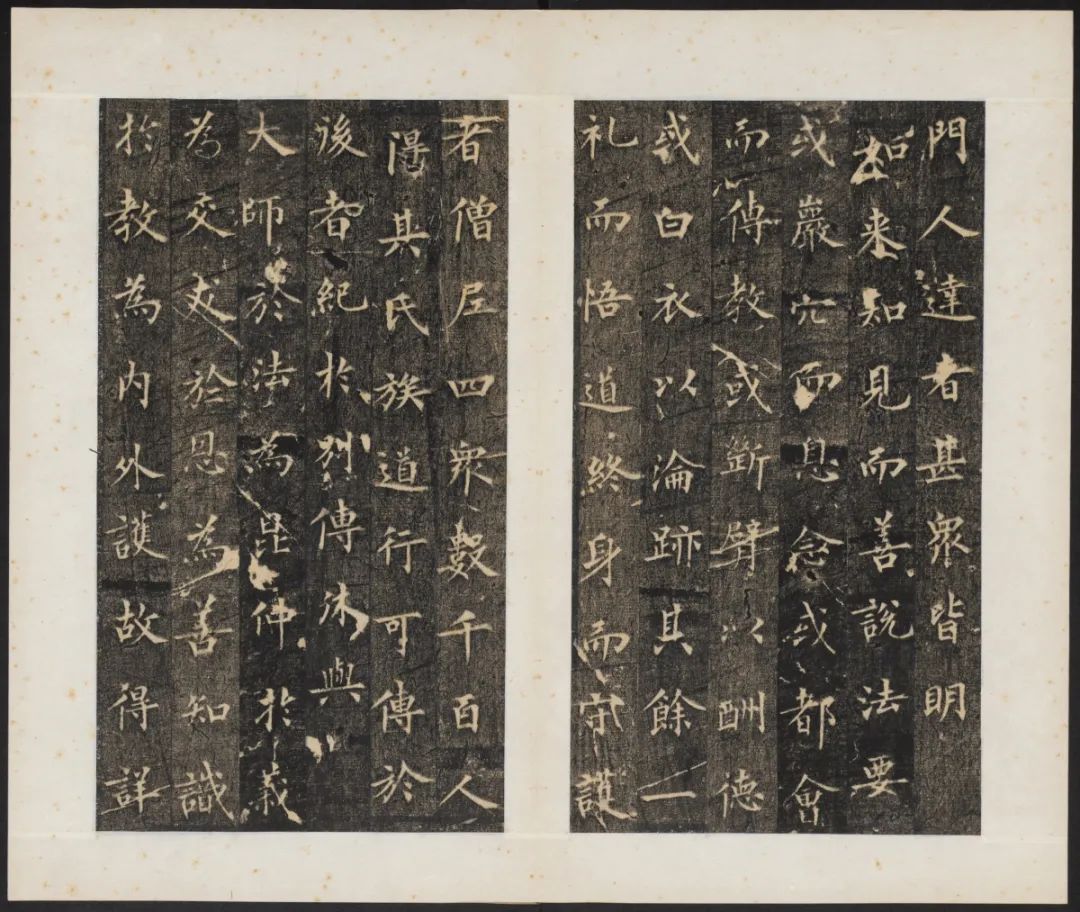 門人達者甚衆皆明
如来知見而善說法要
或巖穴而息念或都會
而傳教或斷臂以酬德
或白衣以淪跡其餘一
礼而悟道終身而守護
者僧尼四衆數千百人
得其氏族道行可傳於
後者紀於別傳休與
大師於法為昆仲於義
為交友於恩為善知識
於教為内外護故得詳